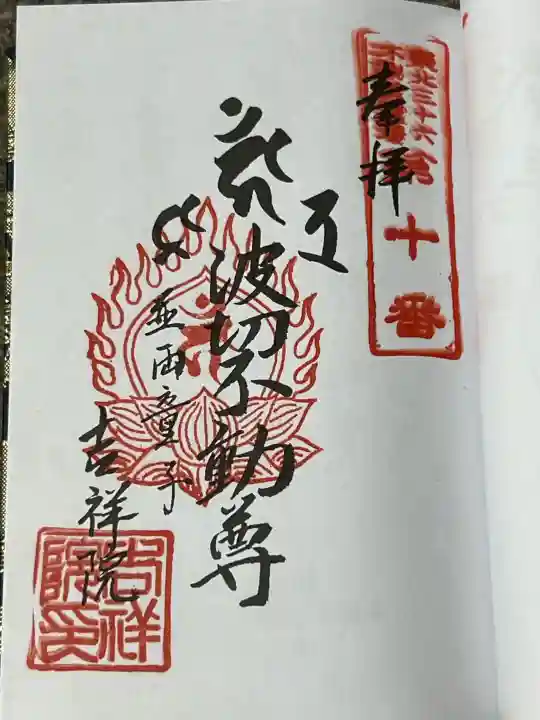 東北三十六不動尊霊場
十番
奉拝
波切不動尊
並両童子
吉祥院
吉祥院印